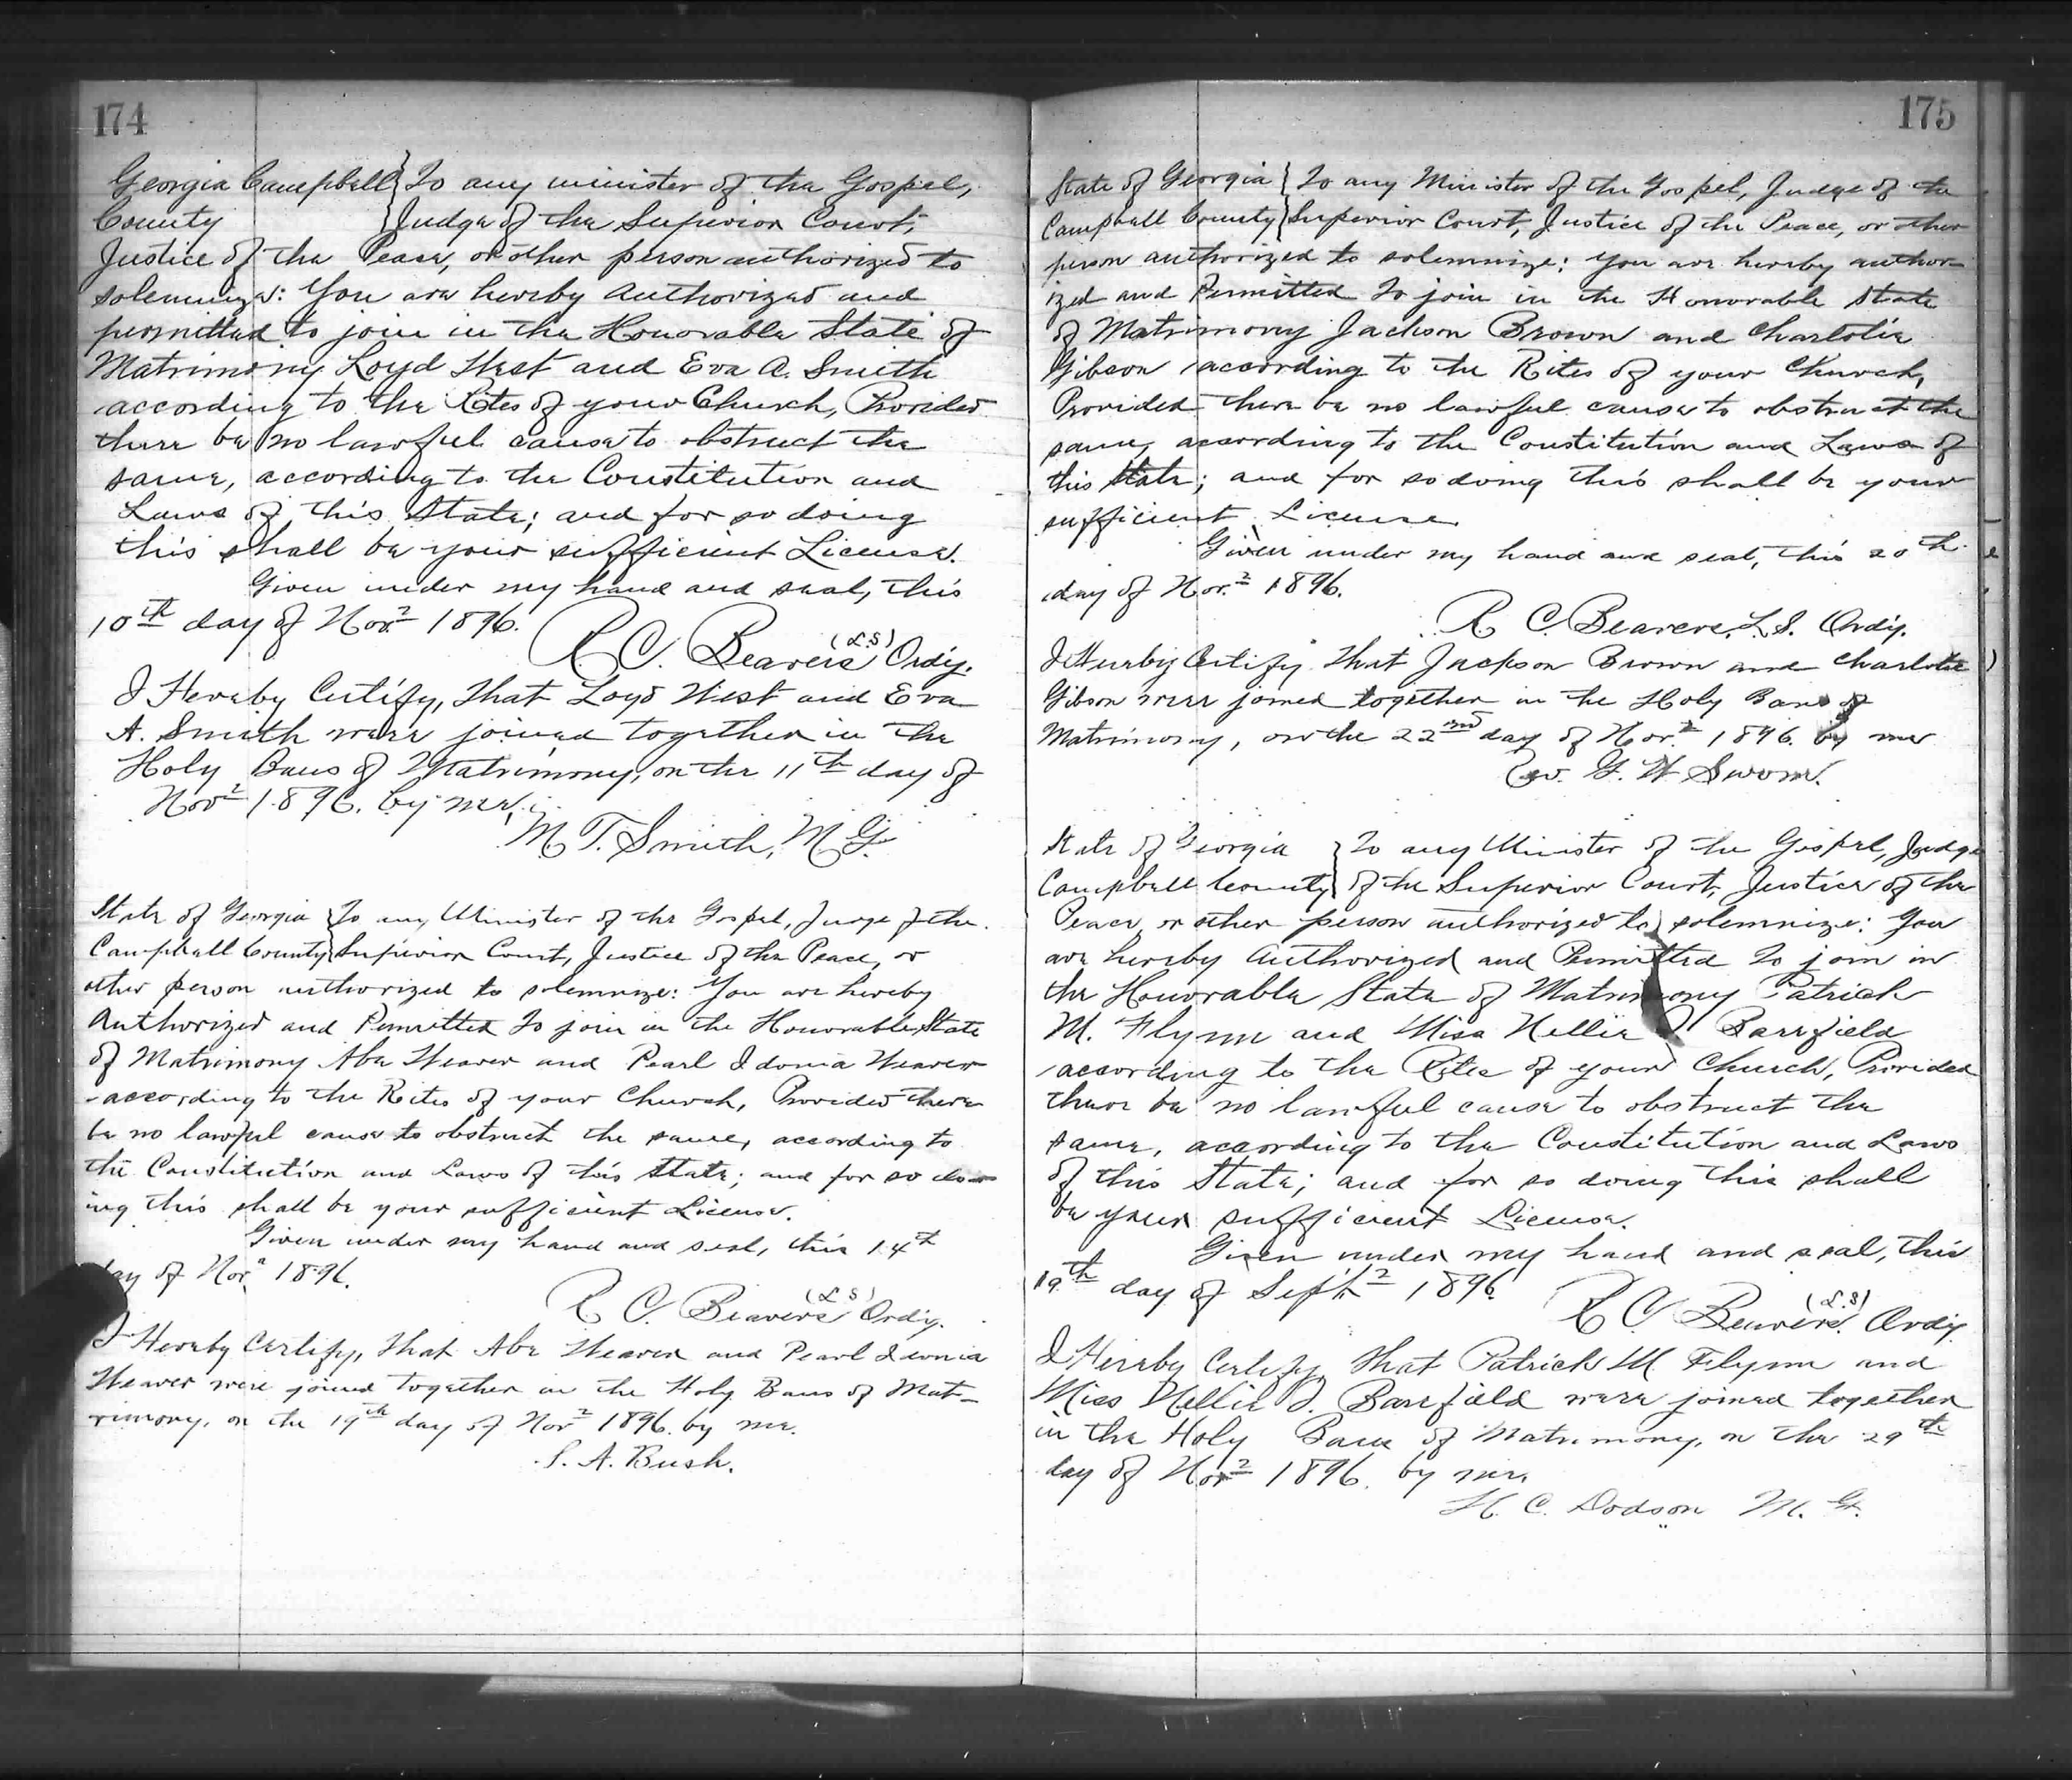 174
Georgia Campbell } To any minister of the Gospel,
County } Judge of the Superior Court,
Justice of the Peace, or other person authorized to
solemnize: You are hereby Authorized and
permitted to join in the Honorable State of
Matrimony Loyd West and Eva A. Smith
according to the Rites of your Church, Provided
there be no lawful cause to obstruct the
same, according to the Constitution and
Laws of this State; and for so doing
this shall be your sufficient License.
Given under my hand and seal, this
10th day of Nov. 1896.
R. C. Beavers (L.S) Ordy.
I Hereby Certify, That Loyd West and Eva
A. Smith were joined together in the
Holy Bans of Matrimony, on the 11th day of
Nov 1896. by me,
M. T. Smith, M. G.
State of Georgia } To any Minister of the Gospel, Judge of the
Campbell County } Superior Court, Justice of the Peace, or
other person authorized to solemnize: You are hereby
Authorized and Permitted To join in the Honorable State
of Matrimony Abe Weaver and Pearl Idonia Weaver
according to the Rites of your Church, Provided there
be no lawful cause to obstruct the same, according to
the Constitution and Laws of this State; and for so do-
ing this shall be your sufficient License.
Given under my hand and seal, this 14th
day of Nov. 1896.
R. C. Beavers (L S) Ordy.
I Hereby Certify, That Abe Weaver and Pearl Idonia
Weaver were joined together in the Holy Bans of Mat-
rimony, on the 19th day of Nov 1896. by me.
S. A. Bush.
175
State of Georgia } To any Minister of the Gospel, Judge of the
Campbell County } Superior Court, Justice of the Peace, or other
person authorized to solemnize: You are hereby author-
ized and Permitted To join in the Honorable State
of Matrimony Jackson Brown and Charlotie
Gibson according to the Rites of your Church,
Provided there be no lawful cause to obstruct the
same, according to the Constitution and Laws of
this State; and for so doing this shall be your
sufficient License.
Given under my hand and seal, this 20th
day of Nov. 1896.
R. C. Beavers, L. S. Ordy.
I Hereby Certify That Jackson Brown and Charlotie
Gibson were joined together in the Holy Bans of
Matrimony, on the 22nd day of Nov. 1896. by me
Rev. G. W
State of Georgia } To any Minister of the Gospel, Judge
Campbell County } of the Superior Court, Justice of the
Peace, or other person authorized to solemnize: You
are hereby Authorized and Permitted To join in
the Honorable State of Matrimony Patrick
M. Flynn and Miss Nellie J. Barefield
according to the Rites of your Church, Provided
there be no lawful cause to obstruct the
same, according to the Constitution and Laws
of this State; and for so doing this shall
be your sufficient License.
Given under my hand and seal, this
19th day of Sept. 1896.
R. C. Beavers. (L.S) Ordy.
I Hereby Certify, That Patrick M Flynn and
Miss Nellie J. Barefield were joined together
in the Holy Bans of Matrimony, on the 29th
day of Nov 1896. by me.
H. C. Dodson M. G.